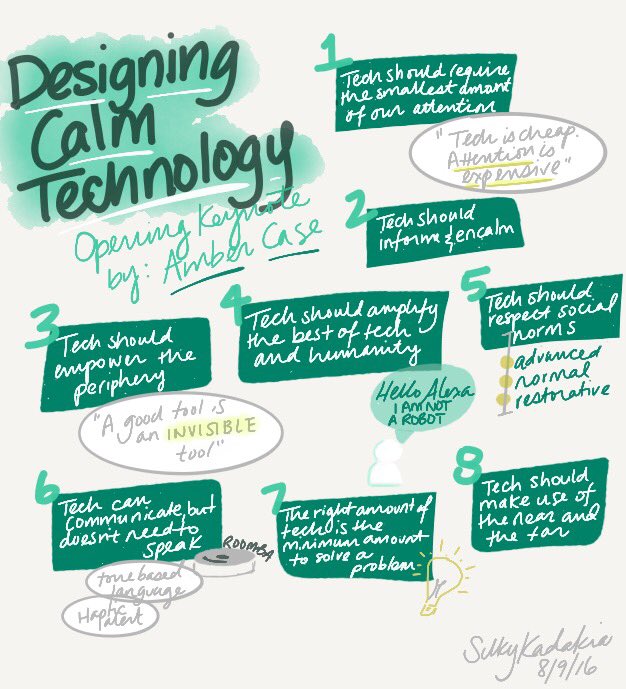 Designing
Calm
Technology
Opening Keynote
by: Amber Case
1
Tech should require
the smallest amount
of our attention
"Tech is cheap.
Attention is
expensive"
2
Tech should
inform & encalm
3
Tech should
empower the
periphery
"A good tool is
an INVISIBLE
tool"
4
Tech should amplify
the best of tech
and humanity
Hello Alexa
I AM NOT
A ROBOT
5
Tech should
respect social
norms
advanced
normal
restorative
6
Tech can
communicate, but
doesn't need to
speak
ROOMBA
tone based
language
Haptic
alert
7
The right amount of
tech is the
minimum amount
to solve a
problem
8
Tech should
make use of
the near and
the far
Silky Kadakia
8/9/16